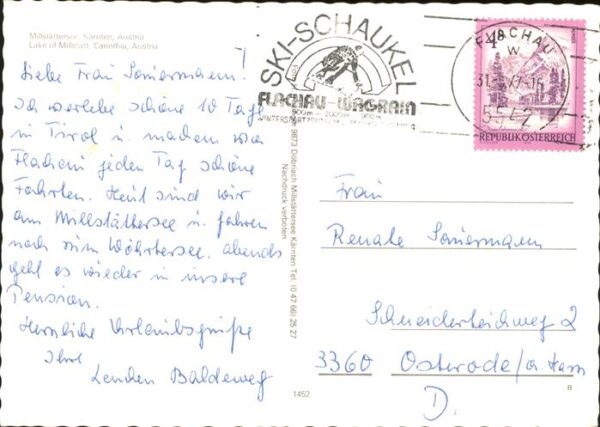 Millstättersee, Kärnten, Austria
Lake of Millstatt, Carinthia, Austria
Liebe Frau Somiermann!
Ich verlebe schöne 10 Tage
in Tirol u. machen von
Flachau jeden Tag schöne
Fahrten. Heut sind wir
am Millstättersee u. fahren
noch zum Wörthersee. abends
geht es wieder in unsere
Pension.
Herzliche Urlaubsgrüße
Ihre
Baldeweg
SKI-SCHAUKEL
FLACHAU-WAGRAIN
900m - 2000m - 900m
FLACHAU
5542
4S
REPUBLIK ÖSTERREICH
9873 Döbriach Millstättersee Kärnten Tel. (0 47 66) 25 27
Nachdruck verboten
1452
Frau
Renate Somiermann
Schneiderteichweg 2
3360 Osterode/a. Harz
D.
8